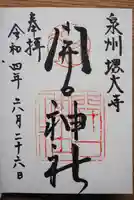 泉州 堺大寺
開口神社
奉拝
令和四年六月二十六日